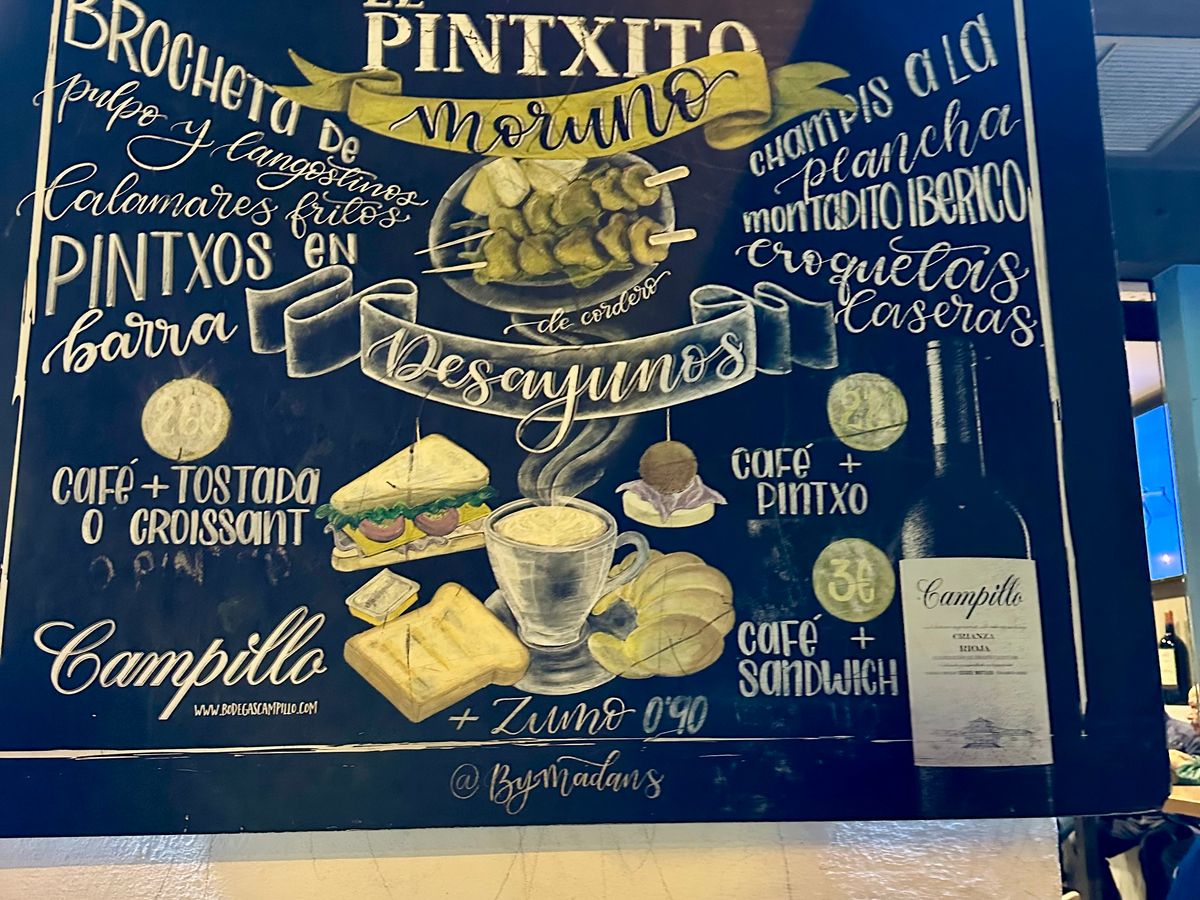 EL
PINTXITO
moruno
de cordero
BROCHETA DE
pulpo y langostinos
Calamares fritos
PINTXOS en
barra
CHAMPIS a LA
plancha
montadito IBERICO
croquetas
caseras
Desayunos
CAFÉ + TOSTADA
O CROISSANT
CAFÉ +
PINTXO
3€
CAFÉ +
SANDWICH
+ Zumo 0'90
Campillo
www.bodegascampillo.com
Campillo
CRIANZA
RIOJA
@ByMadans